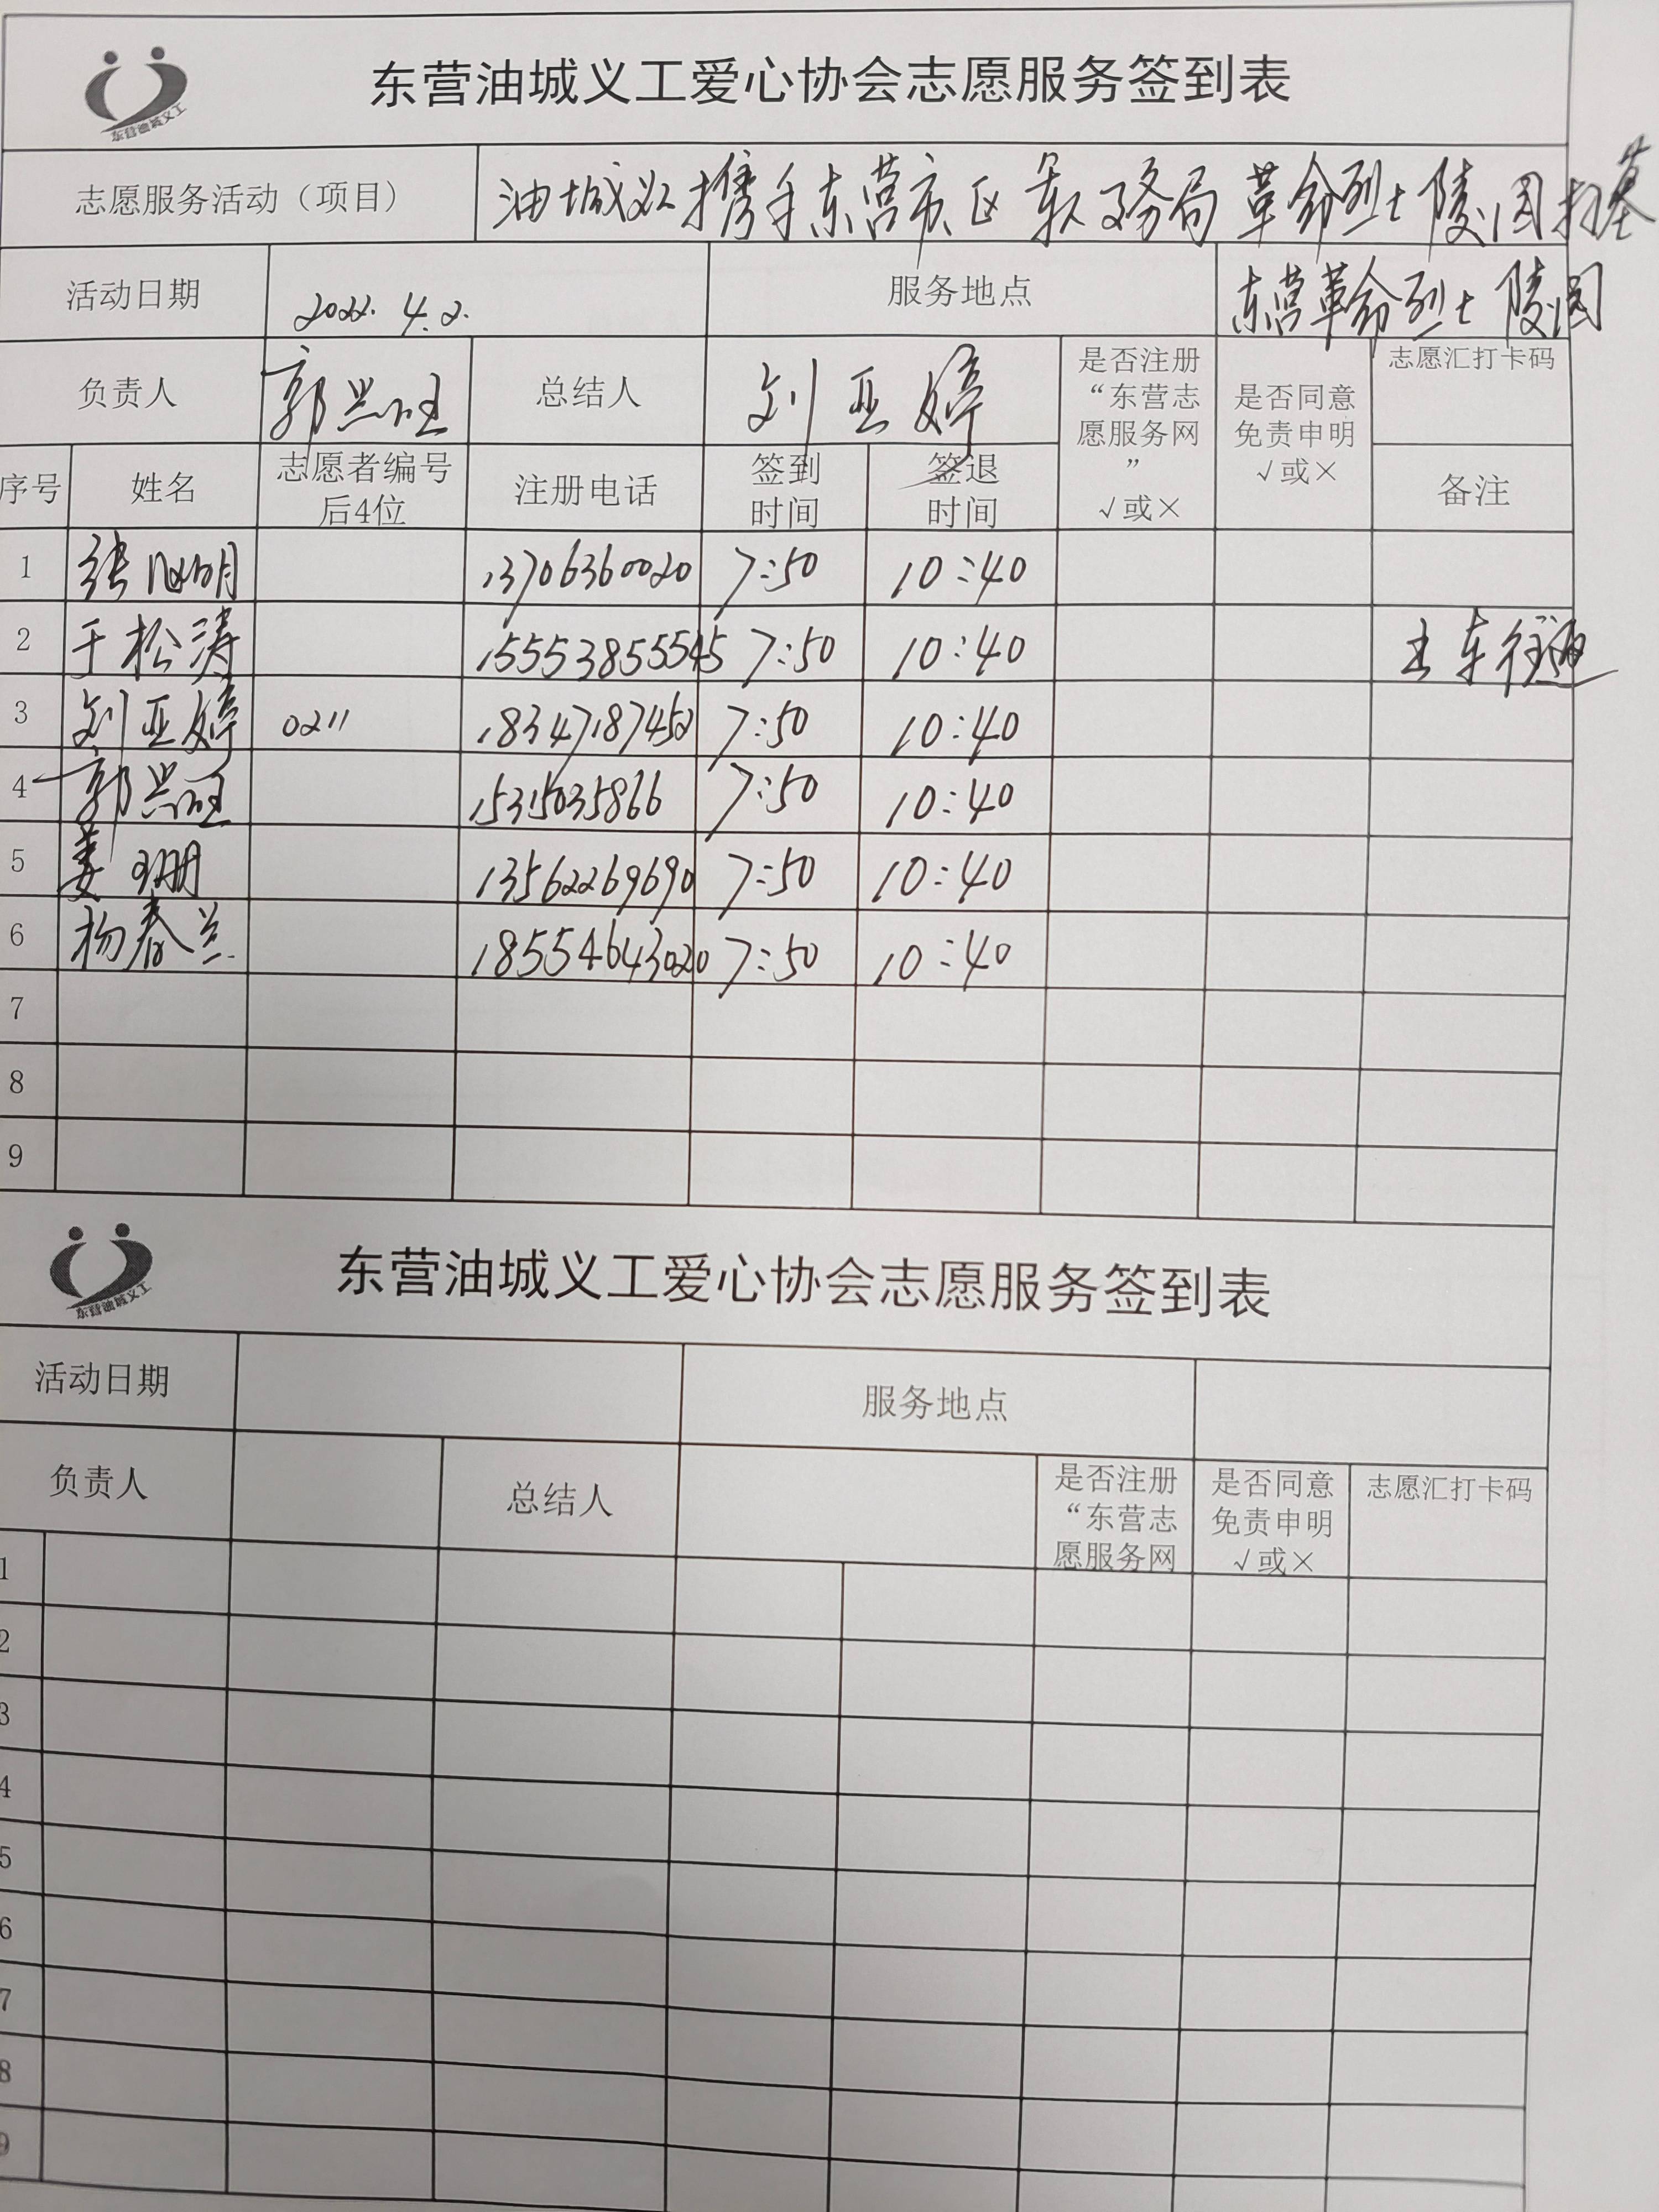 东营油城义工
东营油城义工爱心协会志愿服务签到表
志愿服务活动（项目） 油城义工携手东营市区税务局革命烈士陵园扫墓
活动日期 2022.4.2. 服务地点 东营革命烈士陵园
负责人 郭兴旺 总结人 刘亚婷 是否注册“东营志愿服务网” √或× 是否同意免责申明 √或× 志愿汇打卡码
序号 姓名 志愿者编号后4位 注册电话 签到时间 签退时间 备注
1 张 明 13706360020 7:50 10:40
2 于松涛 15553855545 7:50 10:40
3 刘亚婷 0211 18347187452 7:50 10:40
4 郭兴旺 15315035866 7:50 10:40
5 姜珊 13562269690 7:50 10:40
6 杨春兰 18554643020 7:50 10:40
7
8
9
东营油城义工
东营油城义工爱心协会志愿服务签到表
活动日期 服务地点
负责人 总结人 是否注册“东营志愿服务网 是否同意免责申明 √或× 志愿汇打卡码
1
2
3
4
5
6
7
8
9